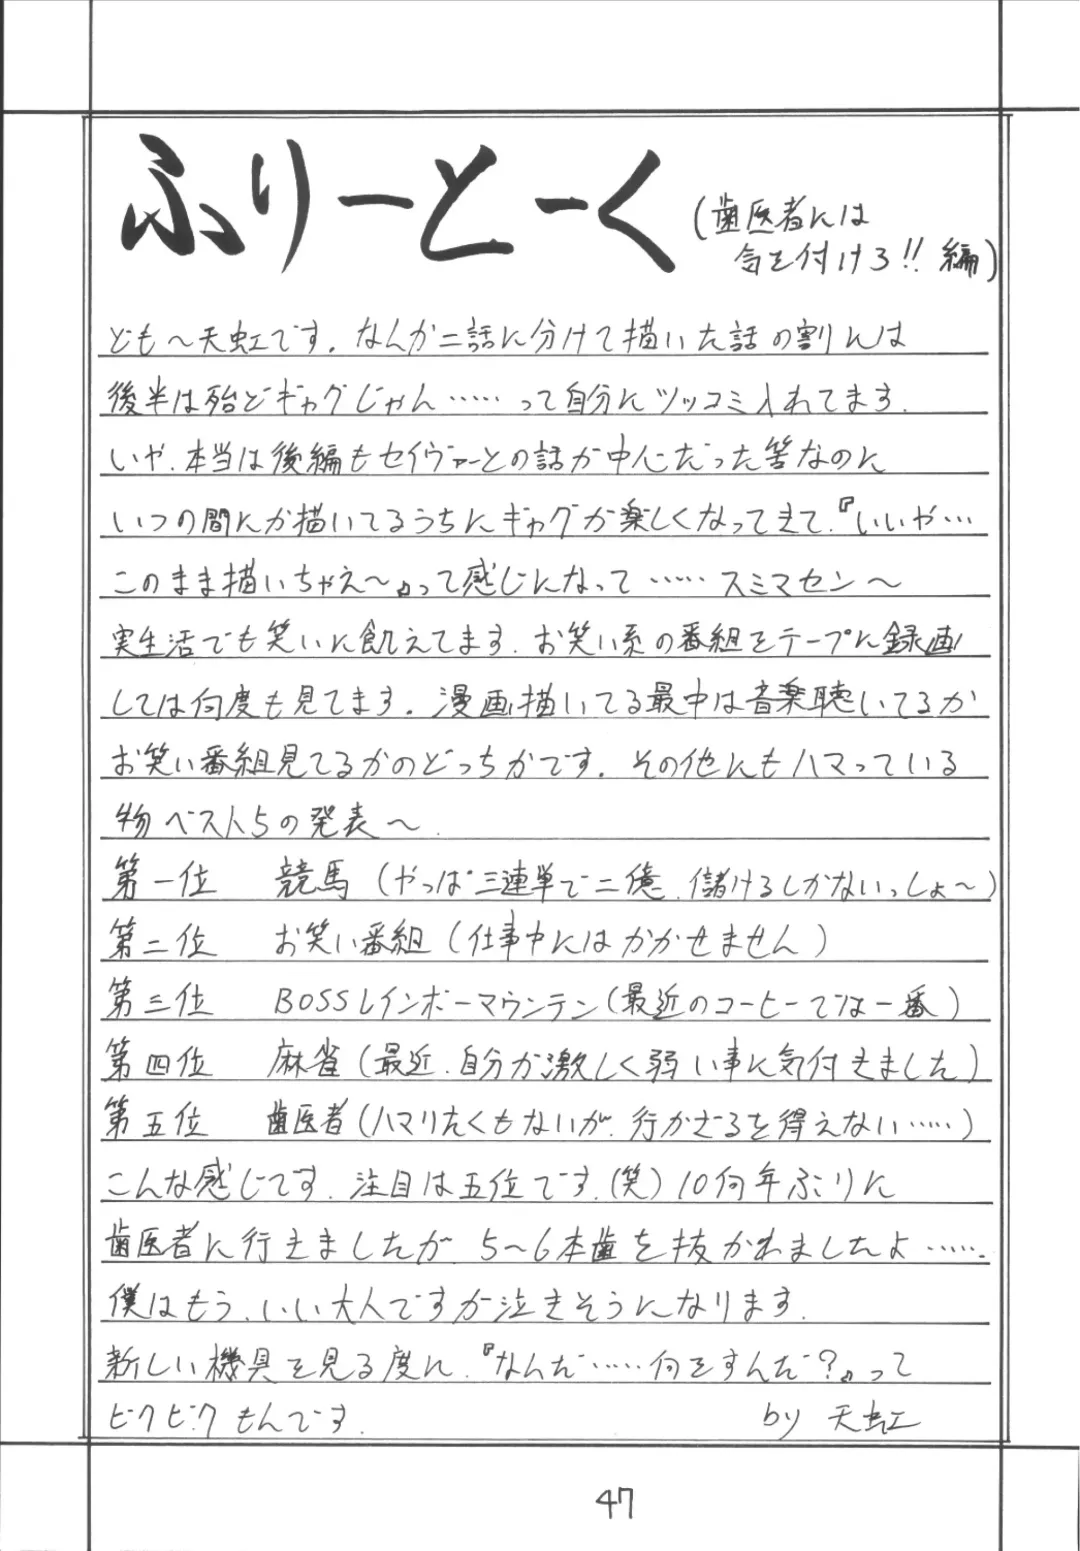 ふりーとーく
(歯医者には
気を付けろ!!編)
ども〜天虹です。なんか二話に分けて描いた話の割には
後半は殆どギャグじゃん……って自分にツッコミ入れてます。
いや、本当は後編もセイヴァーとの話が中心だった筈なのに
いつの間にか描いてるうちにギャグが楽しくなってきて、『いいや…
このまま描いちゃえ〜』って感じになって……スミマセン〜
実生活でも笑いに飢えてます。お笑い系の番組をテープに録画
しては何度も見てます。漫画描いてる最中は音楽聴いてるか
お笑い番組見てるかのどっちかです。その他にもハマっている
物ベスト5の発表〜。
第一位 競馬(やっぱ三連単で二億、儲けるしかないっしょ〜)
第二位 お笑い番組(仕事中にはかかせません)
第三位 BOSSレインボーマウンテン(最近のコーヒーでは一番)
第四位 麻雀(最近、自分が激しく弱い事に気付きました)
第五位 歯医者(ハマりたくもないが、行かざるを得えない……)
こんな感じです。注目は五位です。(笑)10何年ぶりに
歯医者に行きましたが、5〜6本歯を抜かれましたよ……。
僕はもう、いい大人ですが泣きそうになります。
新しい機具を見る度に、『なんだ……何をすんだ?』って
ビクビクもんです。 by 天虹
47